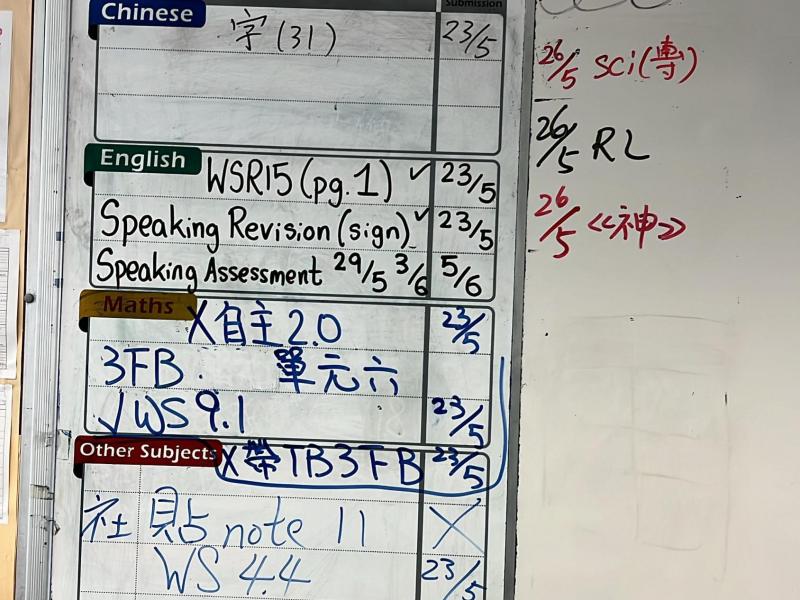 Chinese
Submission
字(31) 23/5
English
WSR15(pg.1) ✓ 23/5
Speaking Revision (sign) ✓ 23/5
Speaking Assessment 29/5 3/6 5/6
Maths
X自主2.0 23/5
3FB. 單元六
✓WS 9.1 23/5
Other Subjects X帶TB3FB 23/5
社 貼note 11 X
WS 4.4 23/5
26/5 sci(專)
26/5 RL
26/5 <<神>>